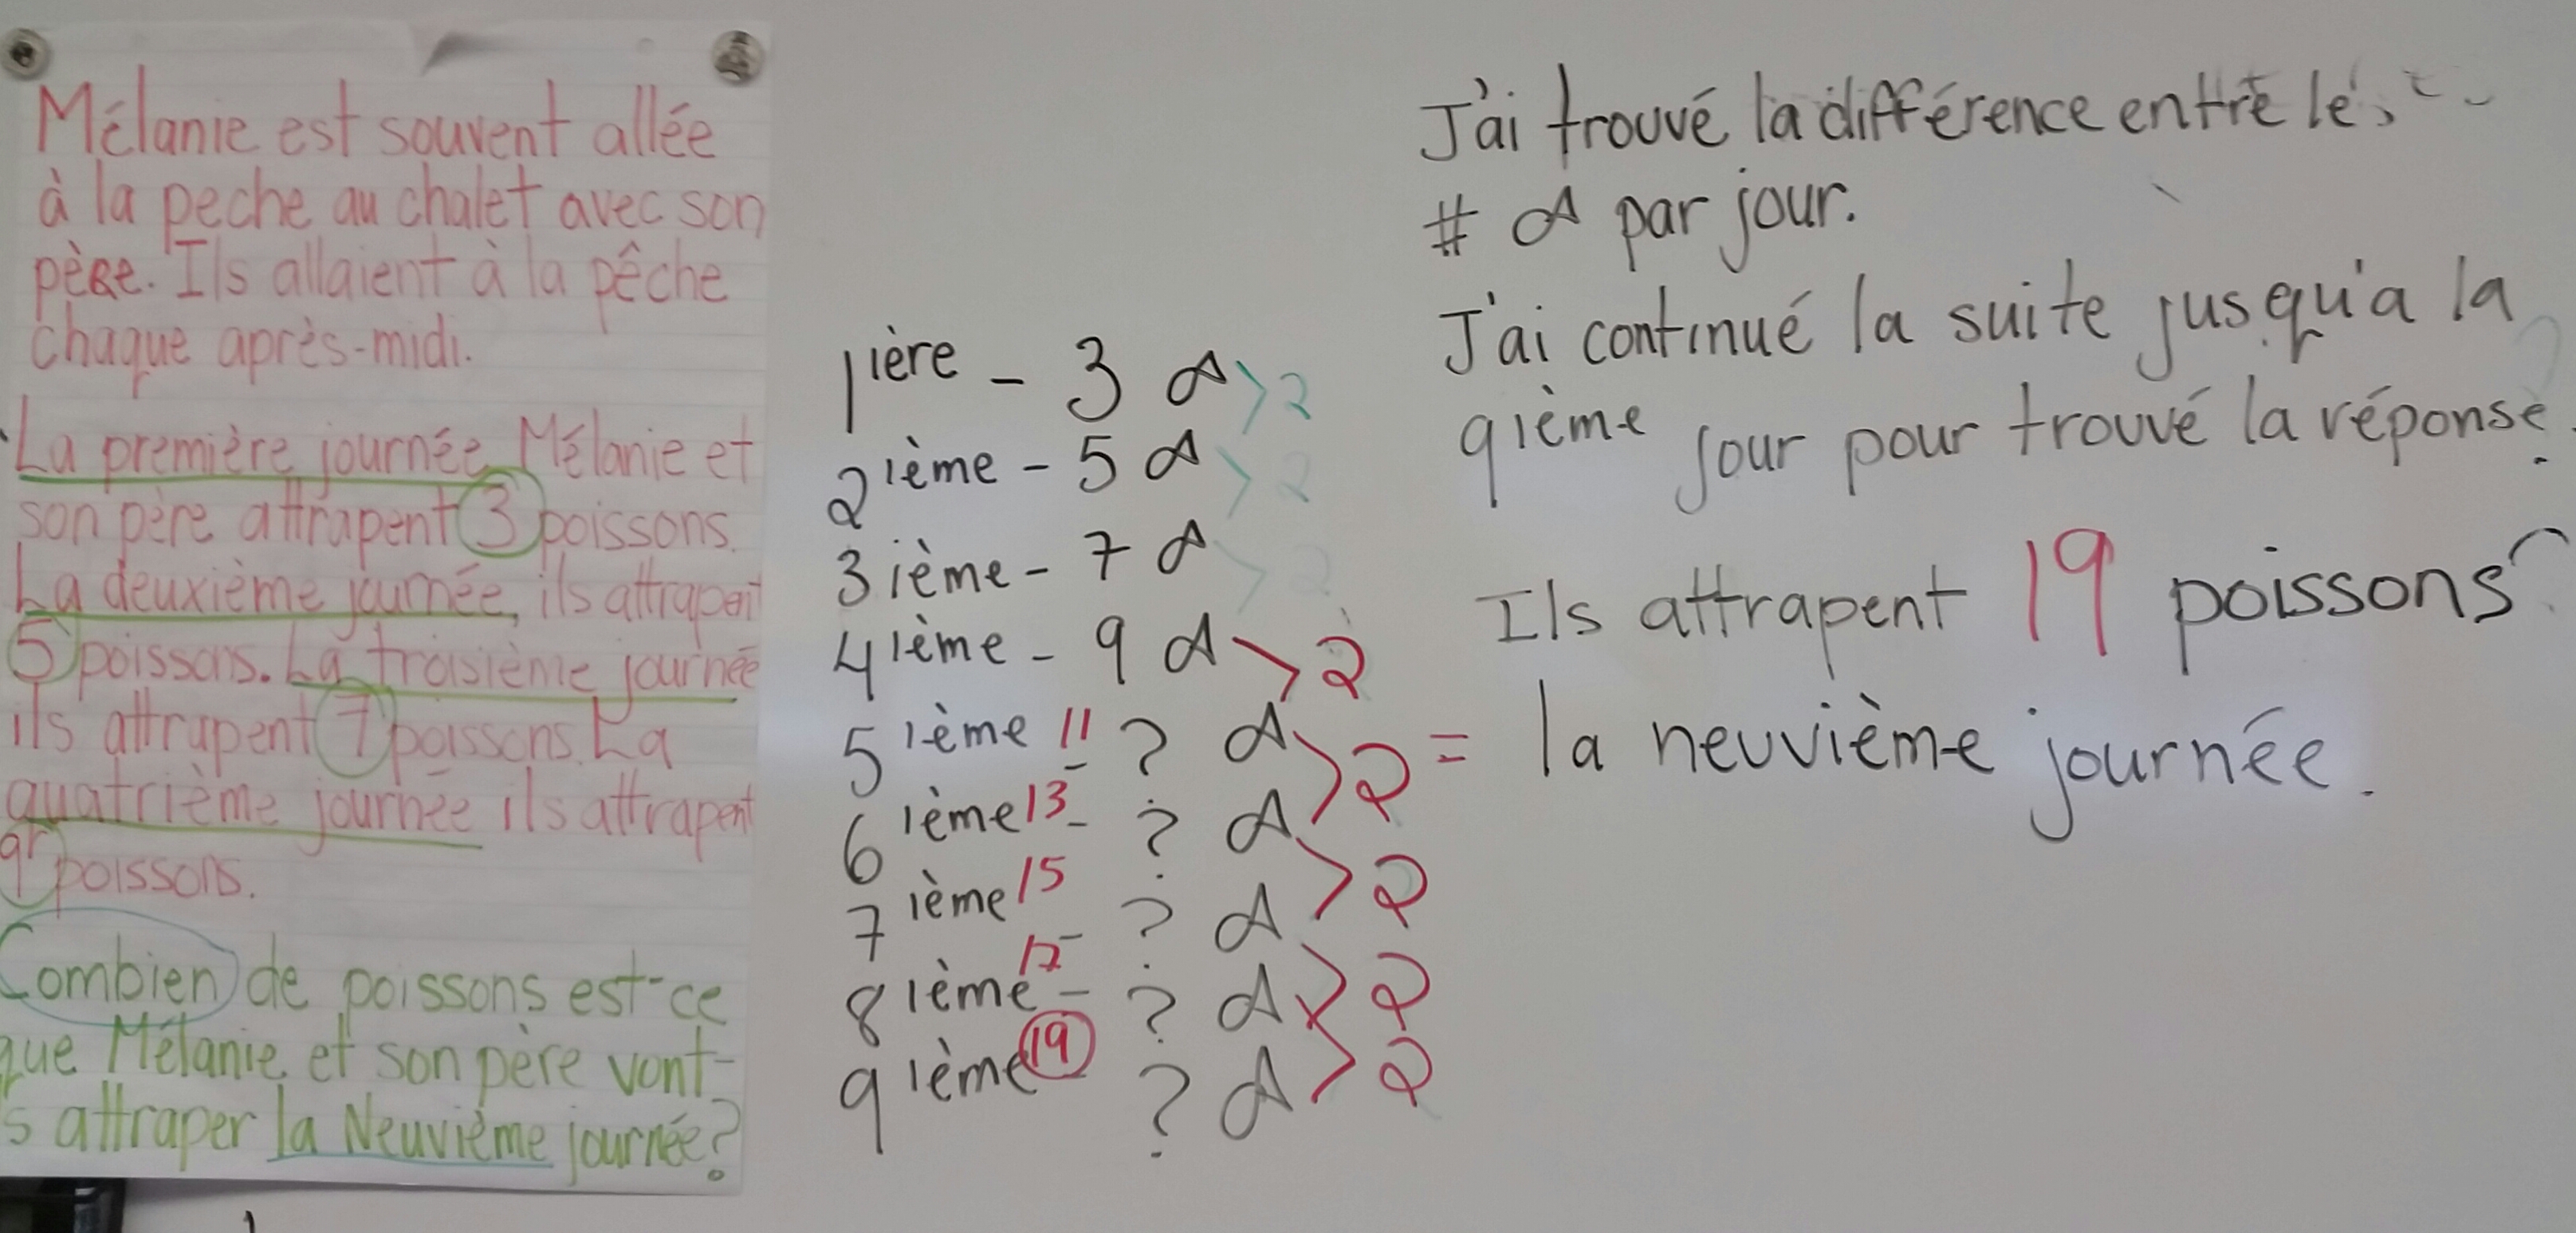 Mélanie est souvent allée
à la peche au chalet avec son
père. Ils allaient à la pêche
chaque après-midi.
La première journée Mélanie et
son père attrapent 3 poissons.
La deuxième journée, ils attrapent
5 poissons. La troisième journée
ils attrapent 7 poissons. La
quatrième journée ils attrapent
9 poissons.
Combien de poissons est-ce
que Mélanie et son père vont-
s attraper la Neuvième journée?
1ière - 3 >2
2ième - 5 >2
3ième - 7 >2
4ième - 9 >2
5ième 11 - ? >2
6ième 13 - ? >2
7ième 15 - ? >2
8ième 17 - ? >2
9ième 19 - ?
J'ai trouvé la différence entre les
# par jour.
J'ai continué la suite jusqu'a la
9ième jour pour trouvé la réponse.
Ils attrapent 19 poissons
= la neuvième journée.